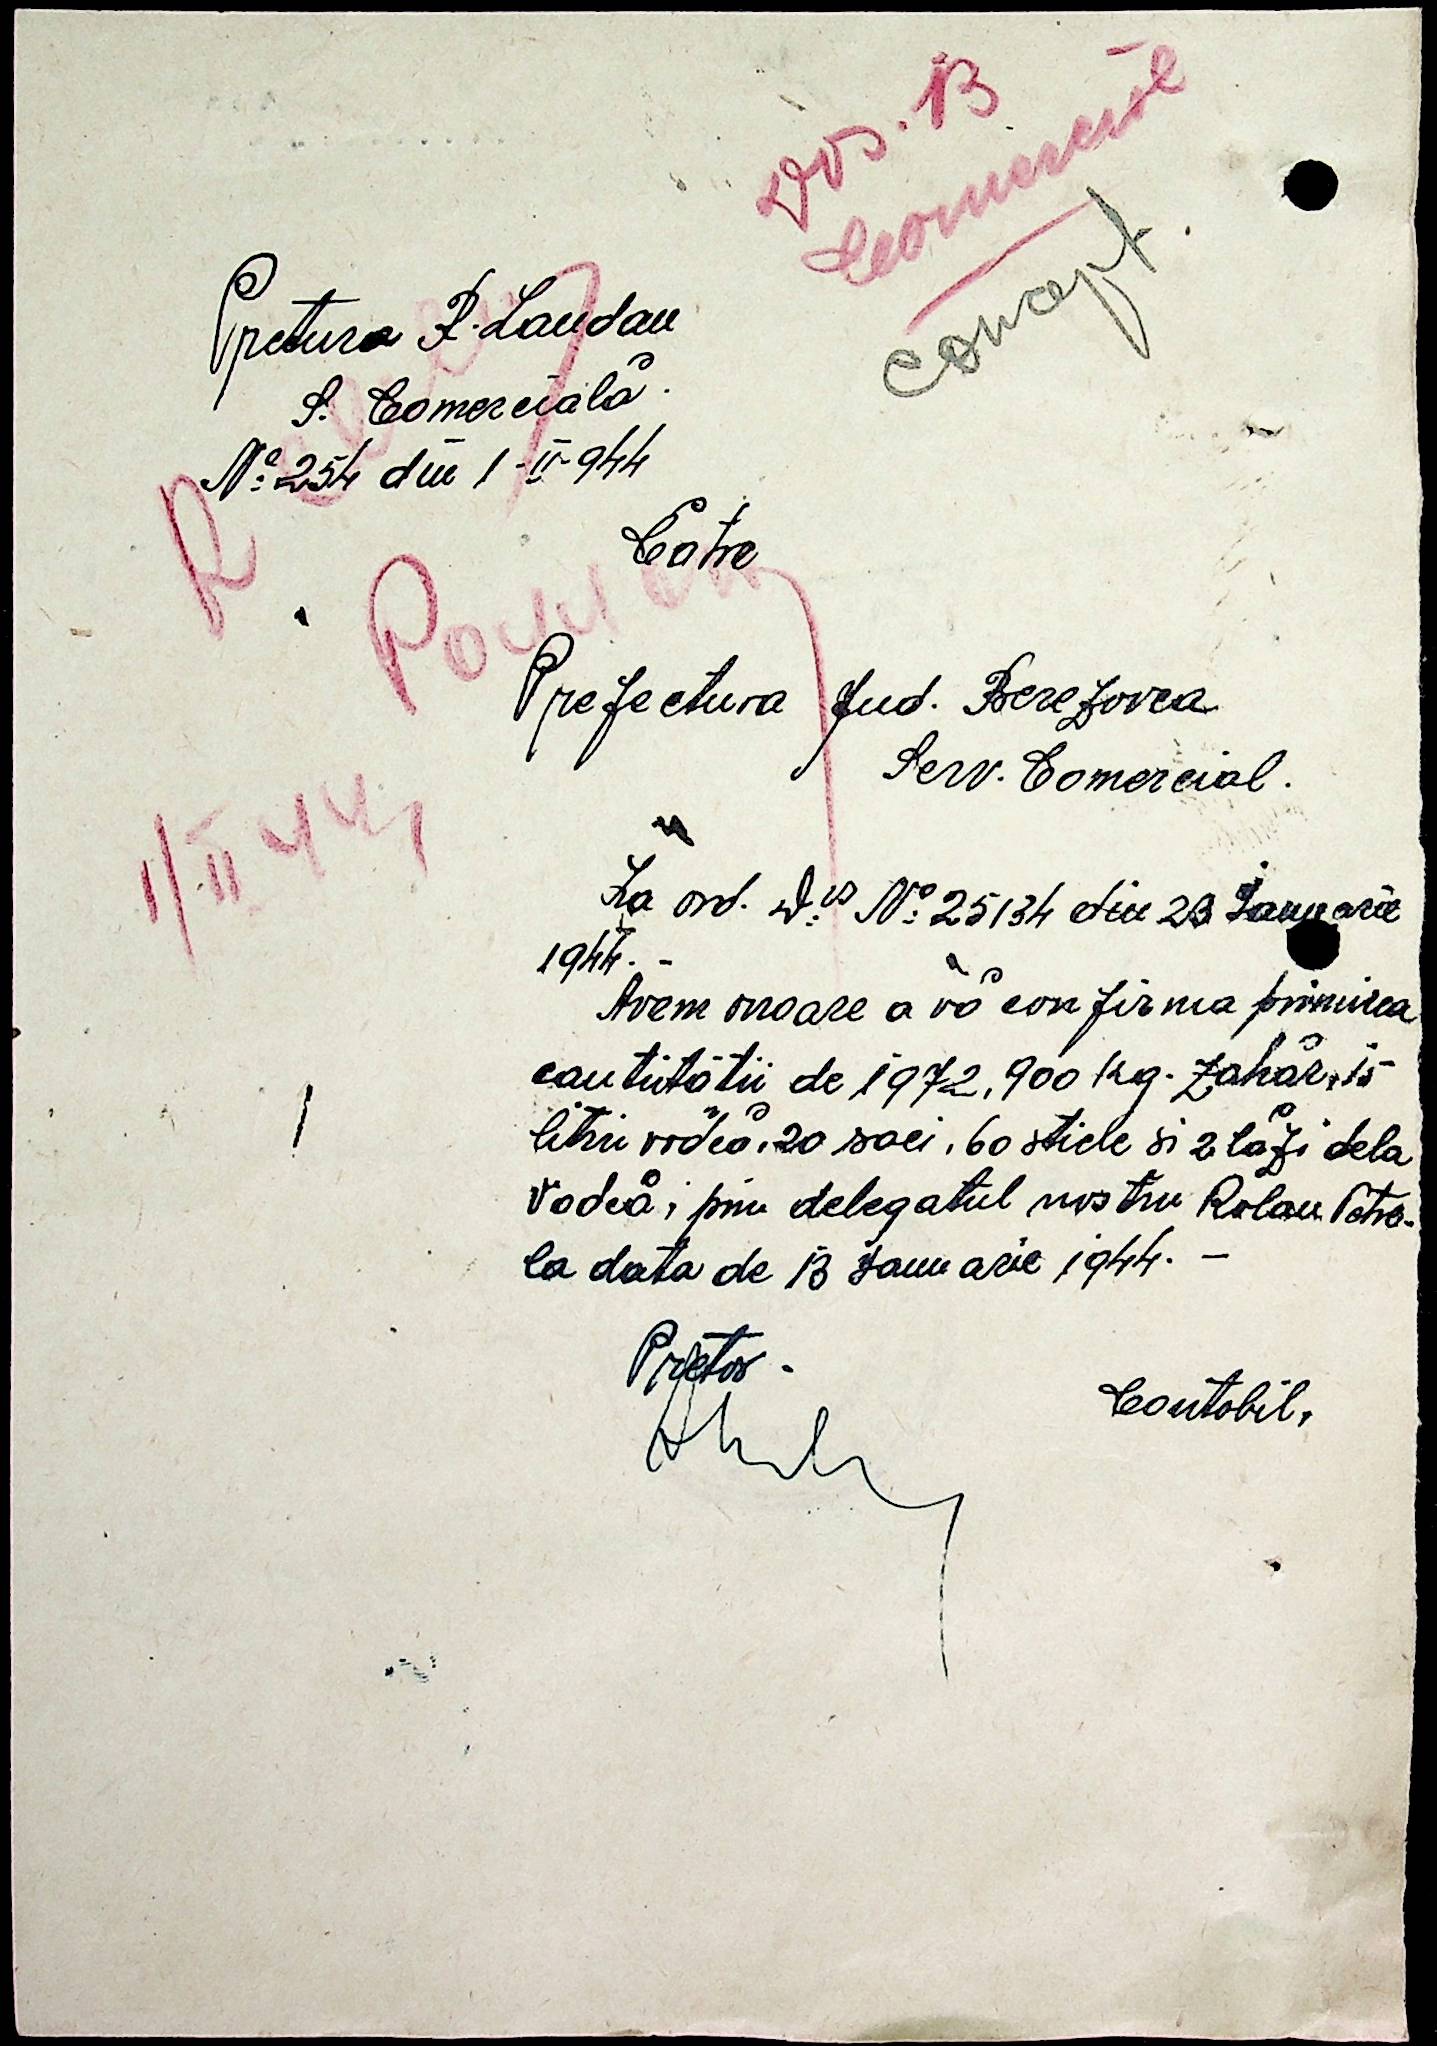 Dos. B
Comerciale
concept.
Pretura R. Landau
S. Comercială.
Nº: 254 din 1-II-944
Către
Prefectura Jud. Berezovca
Serv. Comercial.
1/II 44
La ord. Dvs Nº: 25134 din 23 Ianuarie
1944. -
Avem onoare a vă confirma primirea
cantității de 1972,900 kg. Zahăr, 15
litri vodcă, 20 saci, 60 sticle si 2 lăzi dela
Vodcă, prin delegatul nostru Rolau Petre.
la data de 13 Ianuarie 1944. -
Pretor.
Contabil,